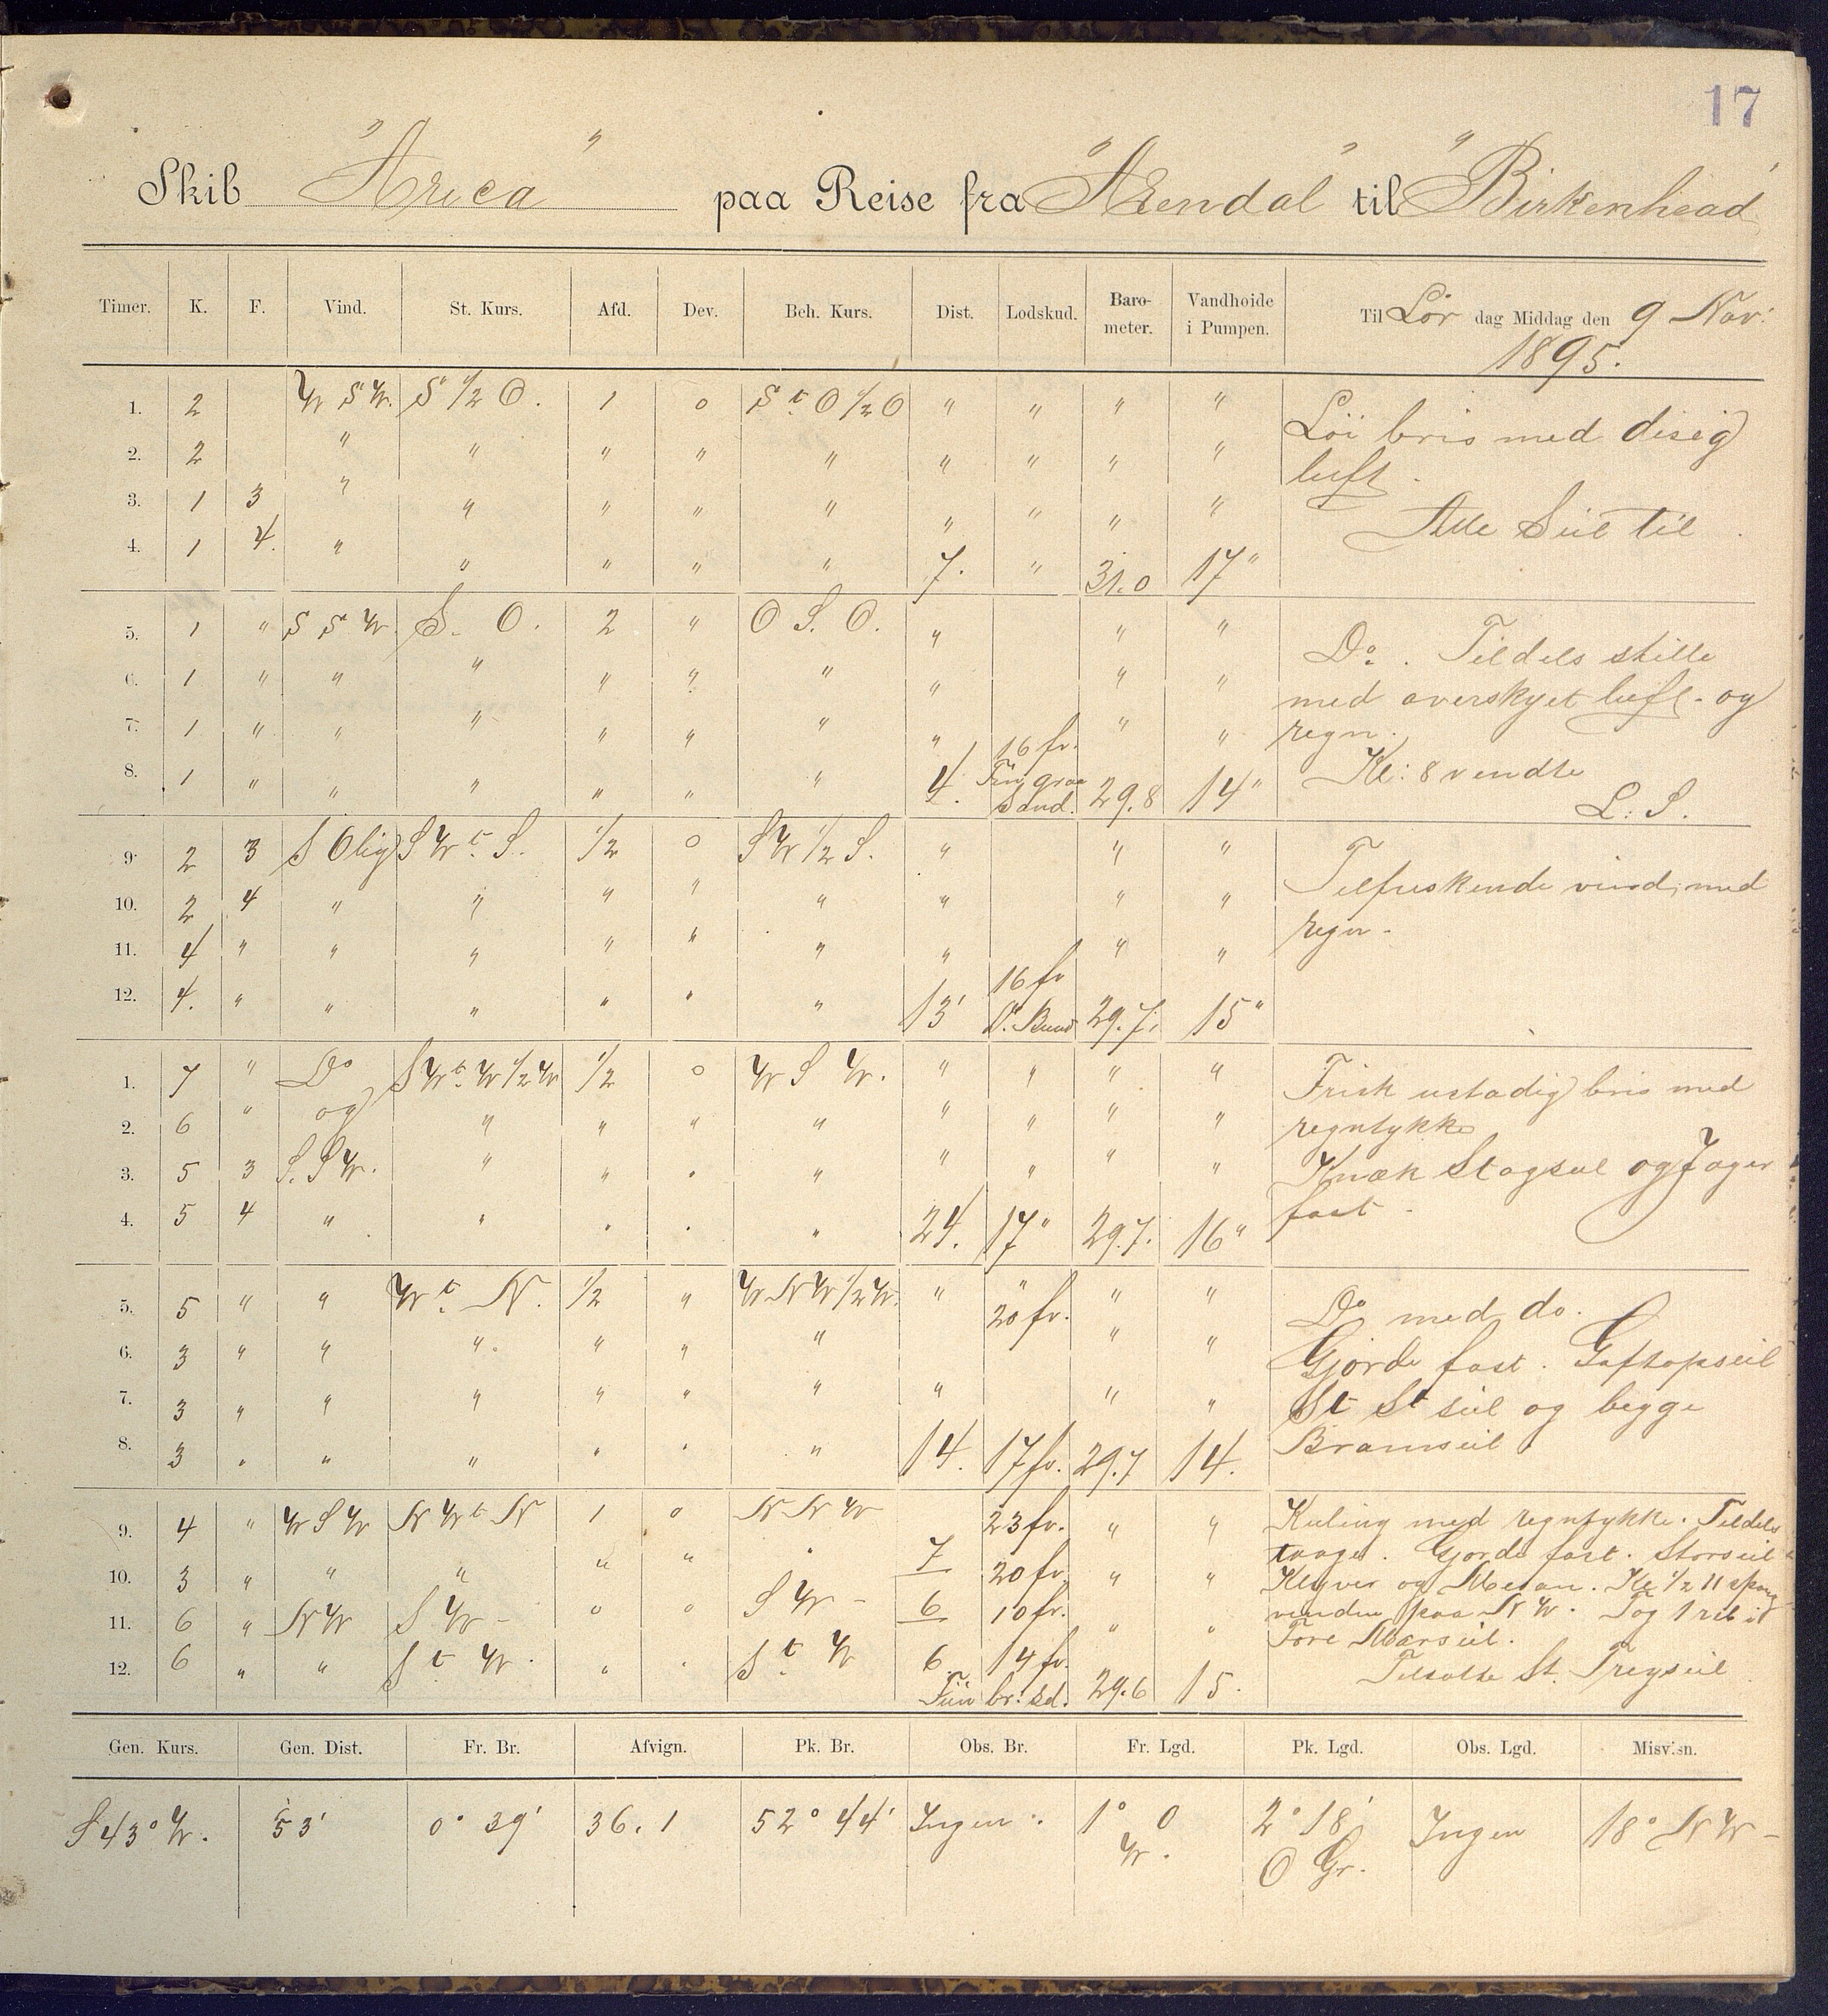 17
Skib "Arica" paa Reise fra "Arendal" til "Birkenhead"
Timer. K. F. Vind. St. Kurs. Afd. Dev. Beh. Kurs. Dist. Lodskud. Baro-meter. Vandhoide i Pumpen. Til Lör dag Middag den 9 Nov:
1895.
1. 2 W S W. S 1/2 O. 1 0 S t O 1/2 O " " " " Löi bris med disig
2. 2 " " " " " " " " " luft.
3. 1 3 " " " " " " " " " Alle Seil til.
4. 1 4. " " " " " 7. " 31.0 17"
5. 1 " S S W. S. O. 2 " O S. O. " " " Do. Tildels stille
6. 1 " " " " " " " " " med overskyet luft. og
7. 1 " " " " " " " 16 fv. " " regn.
8. 1 " " " " " " 4. Fin graa Sand. 29.8 14" Kl: 8 vendte
L: S.
9. 2 3 S Olig S W t. S. 1/2 0 S W 1/2 S. " " " Tilfriskende vind, med
10. 2 4 " " " " " " " " regn.
11. 4 " " " " " " " " "
12. 4. " " " " " " 13' 16 fv Do. Bund 29.7. 15"
1. 7 " Do S W t. W 1/2 W 1/2 0 W S W. " " " " Frisk ustadig bris med
2. 6 " og " " " " " " " " regntykke
3. 5 3 S. S W. " " " " " " " " Knæk Stagseil og Jager
4. 5 4 " " " " " 24. 17" 29.7. 16" fast.
5. 5 " " W t. N. 1/2 " W N W 1/2 W. " " 20 fv. " " Do med do.
6. 3 " " " " " " " " Gjorde fast. Gaftopseil
7. 3 " " " " " " " " " St St seil og begge
8. 3 " " " " " " 14. 17 fv. 29.7 14. Bramseil
9. 4 " W S W N W t N 1 0 N N W 23 fv. " " Kuling med regntykke. Tildels
10. 3 " " " " " " 7 20 fv. " " taage. Gjorde fast. Storseil
11. 6 " N W S W - " " S W - 6 10 fv. " " Klyver og Mesan. Kl 1/2 11 sprang
vinden paa N W. Tog 1 reb i
Fore Mærseil.
12. 6 " " S t W. " " S t. W 6. 14 fv. Fiin br: sd. 29.6 15. Tilsatte St. Treyseil
Gen. Kurs. Gen. Dist. Fr. Br. Afvign. Pk. Br. Obs. Br. Fr. Lgd. Pk. Lgd. Obs. Lgd. Misvisn.
S 43° W. 53' 0° 39' 36.1 52° 44' Ingen. 1° 0 2° 18' Ingen 18° N W -
W. O Gr.